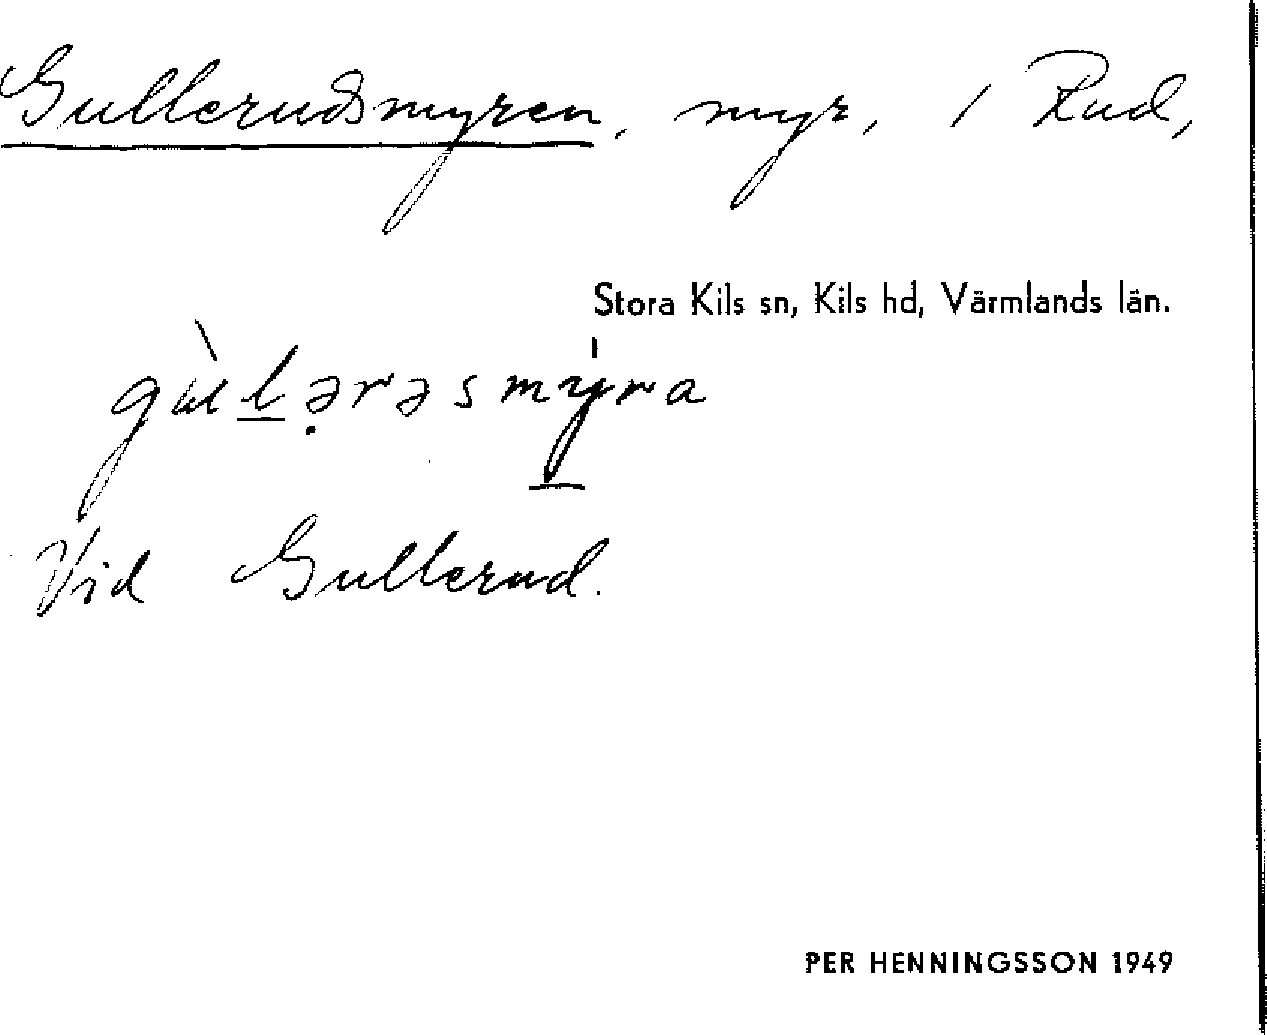 Gullerudsmyren, myr, 1 Rud,
Stora Kils sn, Kils hd, Värmlands län.
Vid Gullerud.
PER HENNINGSSON 1949